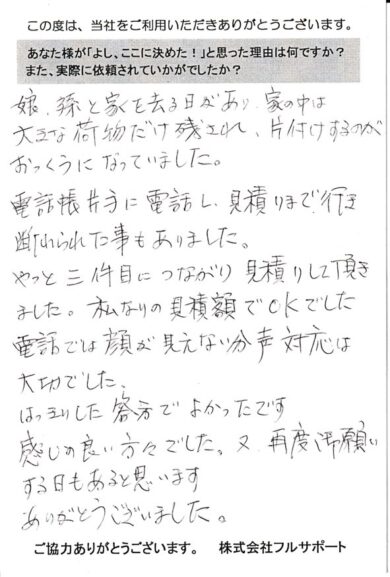 この度は、当社をご利用いただきありがとうございます。
あなた様が「よし、ここに決めた！」と思った理由は何ですか？
また、実際に依頼されていかがでしたか？
娘、孫と家を去る日があり、家の中は
大きな荷物だけ残され、片付けするのが
おっくうになっていました。
電話帳片手に電話し、見積りまで行き
断れられた事もありました。
やっと三件目につながり見積りして頂き
ました。私なりの見積額でOKでした
電話では顔が見えない分声対応は
大切でした、
はっきりした答方でよかったです
感じの良い方々でした。又、再度御願い
する日もあると思います
ありがとうございました。
ご協力ありがとうございます。 株式会社フルサポート